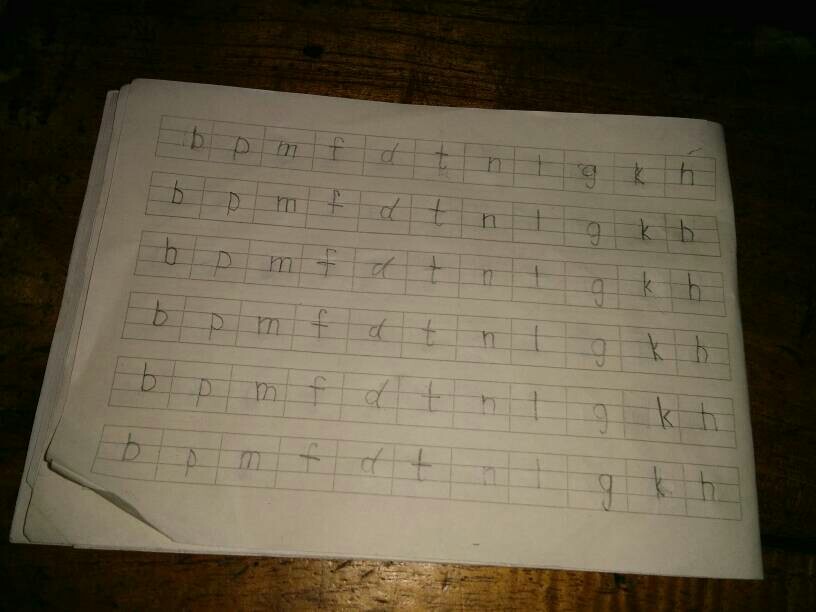 b p m f d t n l g k h
b p m f d t n l g k h
b p m f d t n l g k h
b p m f d t n l g k h
b p m f d t n l g k h
b p m f d t n l g k h